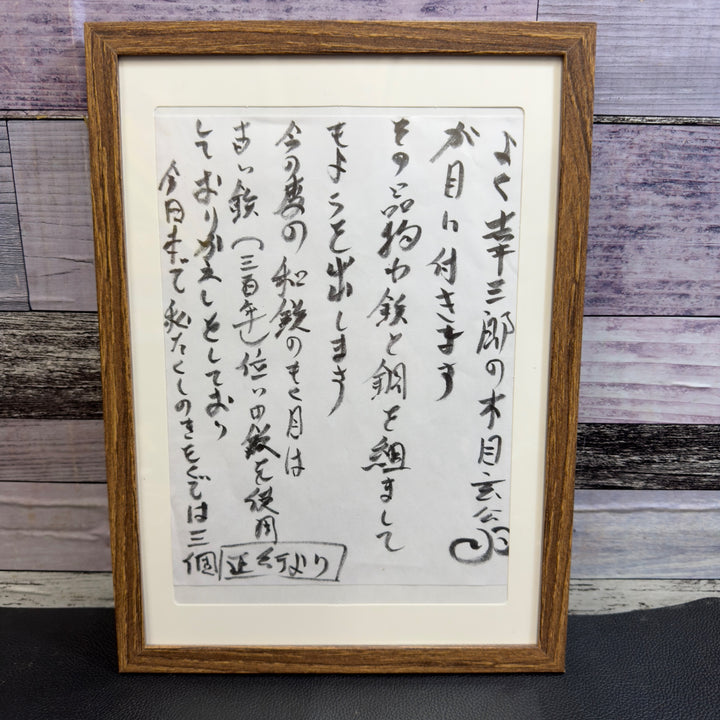 よく幸三郎の木目玄会
が目に付きます
その品物わ鉄と鋼を組まして
もようを出します
今の妻の和鉄のもく目は
古い鉄(三百年)位いの鉄を使用
しておりかましをしており
今日まで私たくしのきもくでは三個
正行なり